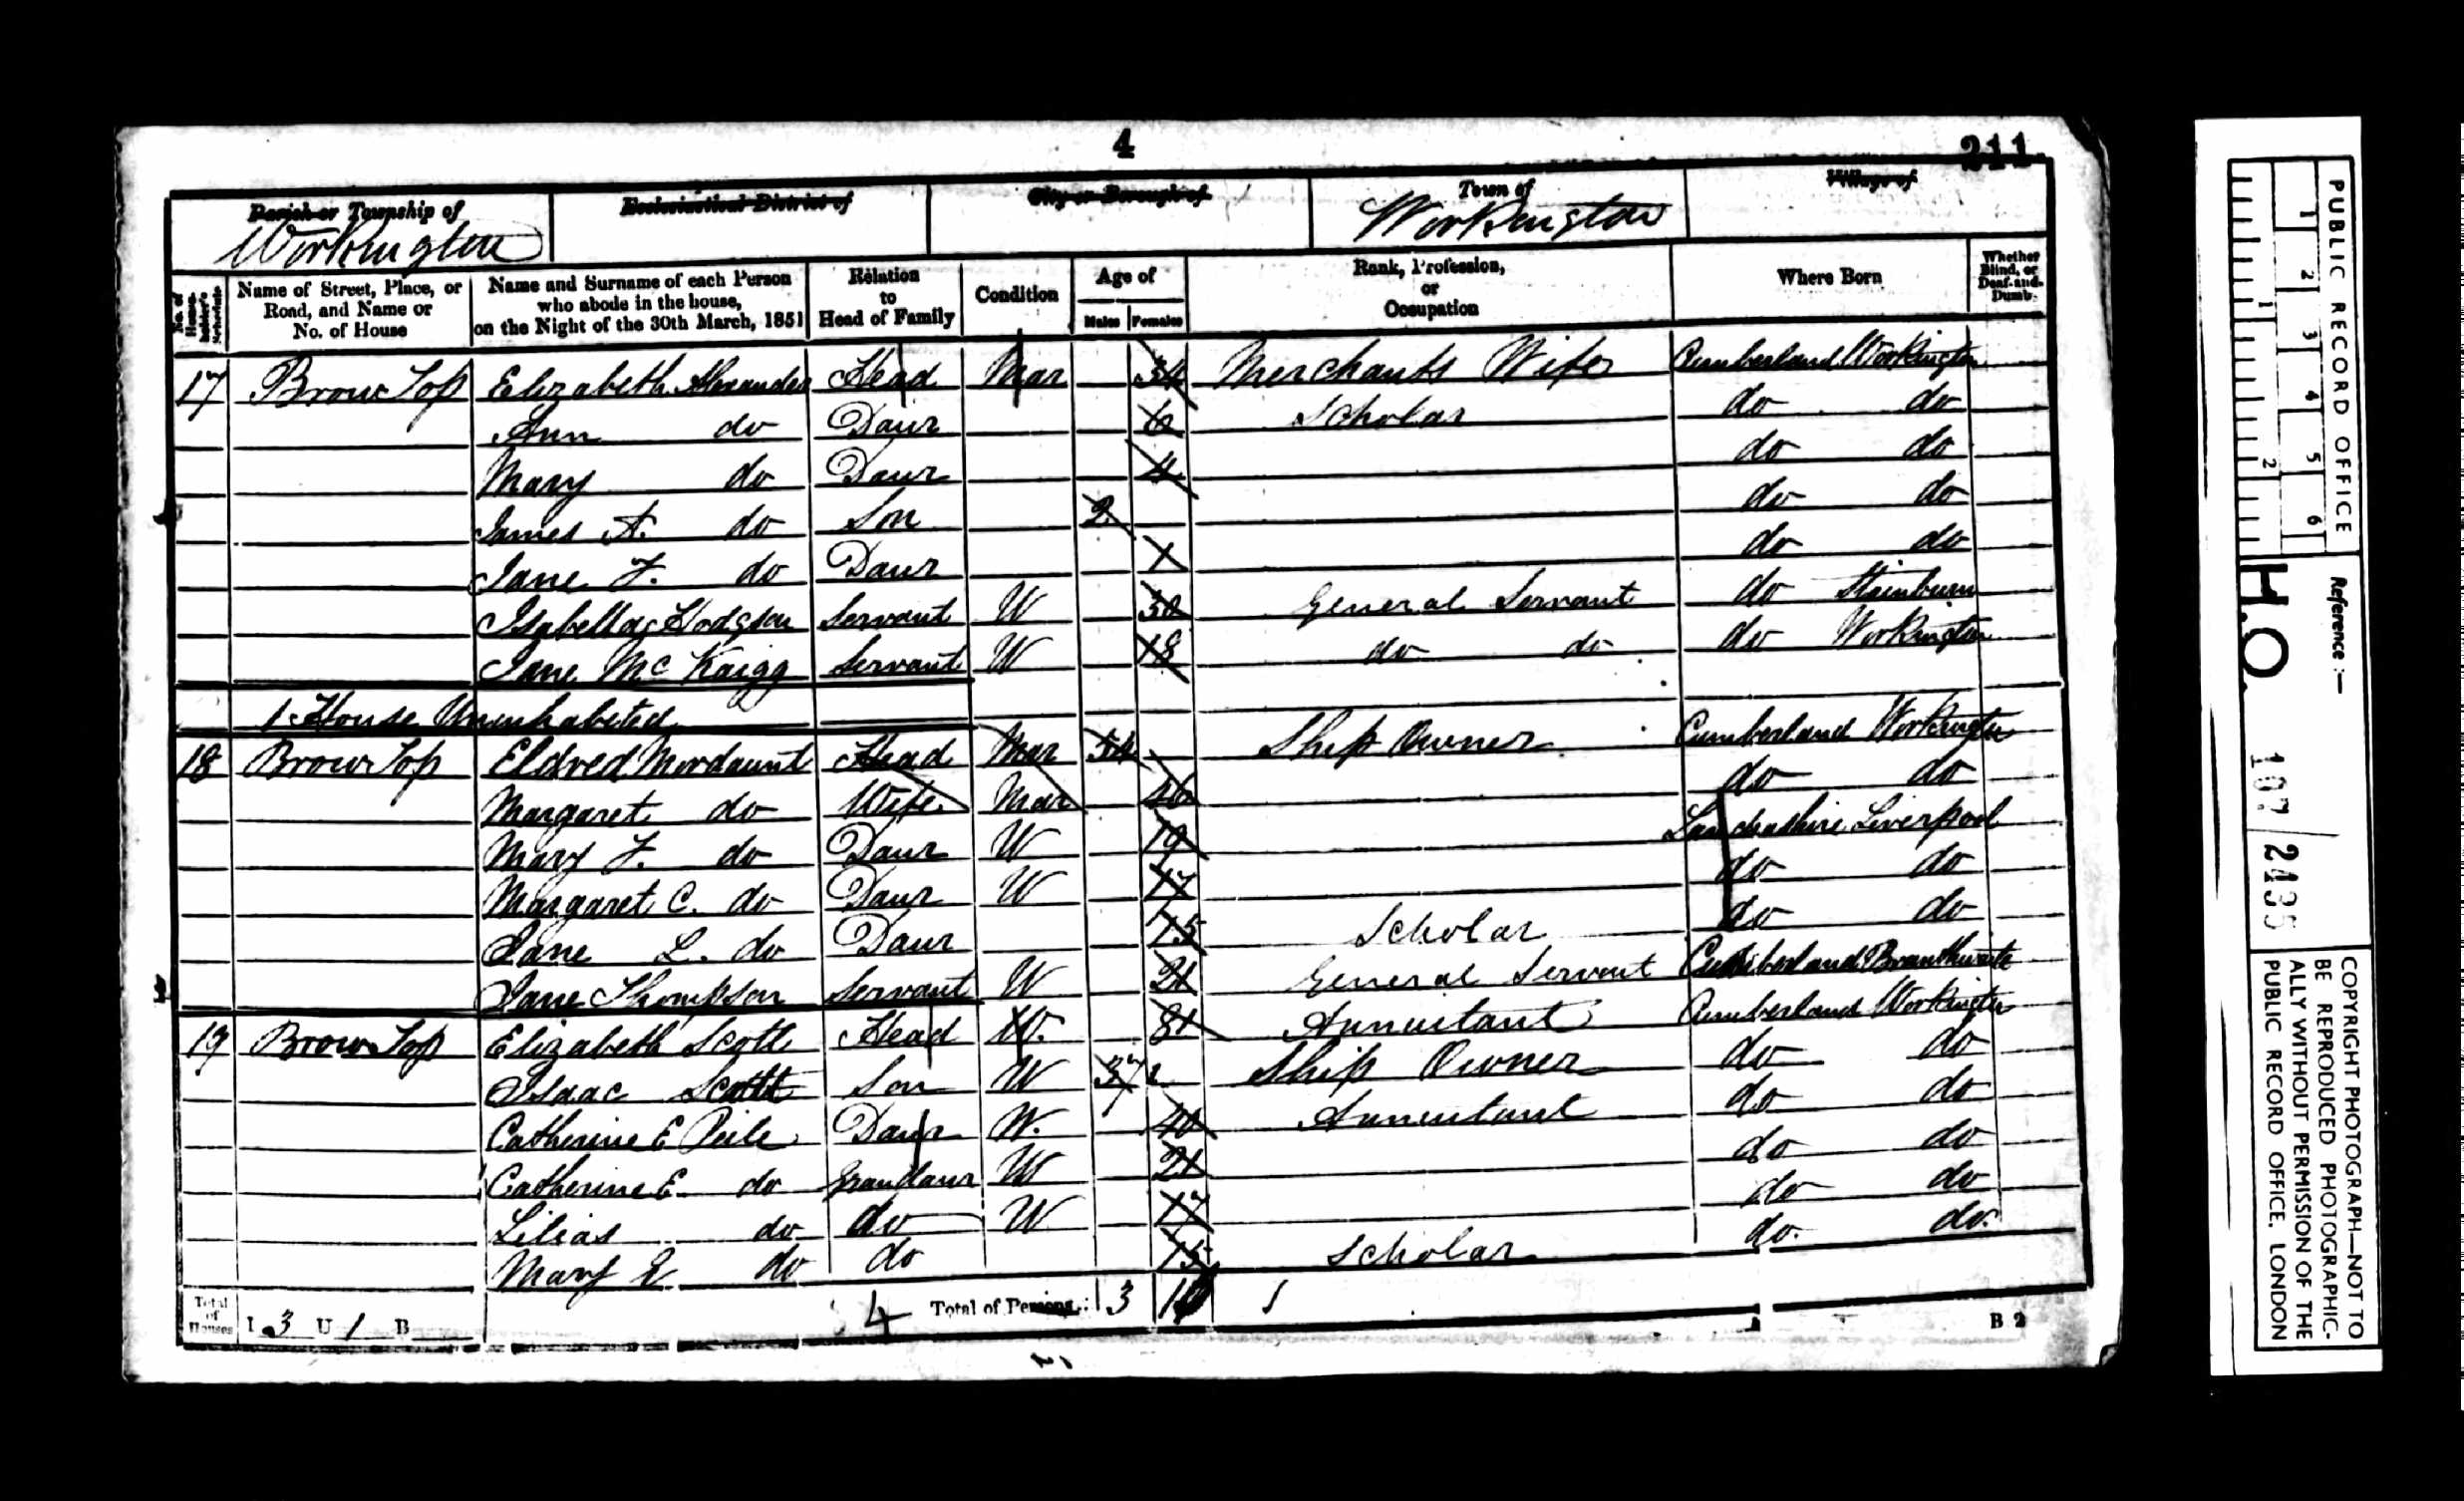 4
211
Parish or Township of
Workington
Ecclesiastical District of
City or Borough of
Town of
Workington
Village of
No. of House-holder's Schedule
Name of Street, Place, or Road, and Name or No. of House
Name and Surname of each Person who abode in the house, on the Night of the 30th March, 1851
Relation to Head of Family
Condition
Age of
Males Females
Rank, Profession, or Occupation
Where Born
Whether Blind, or Deaf-and-Dumb.
17 Brow Top Elizabeth Alexander Head Mar 34 Merchants Wife Cumberland Workington
Ann do Daur 6 Scholar do do
Mary do Daur 4 do do
James A. do Son 2 do do
Jane F. do Daur 1 do do
Isabella Hodgson Servant W 30 General Servant do Stainburn
Jane McKaigg Servant W 18 do do do Workington
1 House Uninhabited
18 Brow Top Eldred Mordaunt Head Mar 54 Ship Owner Cumberland Workington
Margaret do Wife Mar 46 do do
Mary F. do Daur W 19 Lancashire Liverpool
Margaret C. do Daur W 17 do do
Jane L. do Daur 15 Scholar do do
Jane Thompson Servant W 21 General Servant Cumberland Branthwaite
19 Brow Top Elizabeth Scott Head W. 81 Annuitant Cumberland Workington
Isaac Scott Son W 37 Ship Owner do do
Catherine E Peile Daur W. 40 Annuitant do do
Catherine E. do Grandaur W 21 do do
Lilias do do W 17 do do
Mary E do do 15 Scholar do. do.
Total of Houses I 3 U 1 B
4 Total of Persons.. 3
B 2
PUBLIC RECORD OFFICE
1 2 3 4 5 6
1 2
Reference :-
H.O. 107/2435
COPYRIGHT PHOTOGRAPH—NOT TO BE REPRODUCED PHOTOGRAPHIC-ALLY WITHOUT PERMISSION OF THE PUBLIC RECORD OFFICE, LONDON